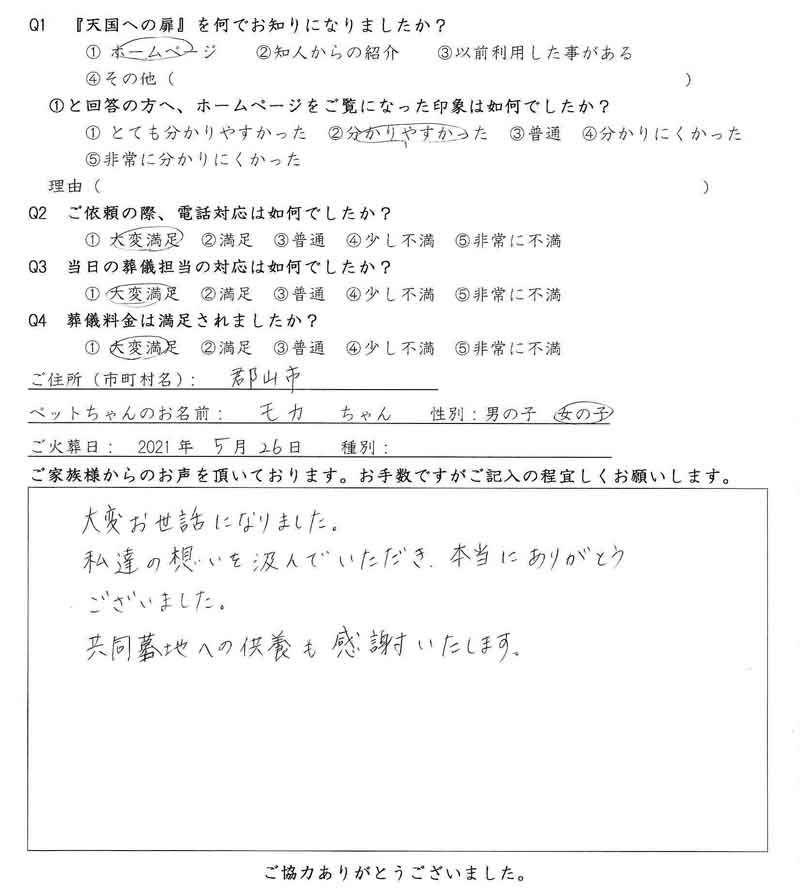 Q1 『天国への扉』を何でお知りになりましたか？
① ホームページ ②知人からの紹介 ③以前利用した事がある
④その他（ ）
①と回答の方へ、ホームページをご覧になった印象は如何でしたか？
① とても分かりやすかった ②分かりやすかった ③普通 ④分かりにくかった
⑤非常に分かりにくかった
理由（ ）
Q2 ご依頼の際、電話対応は如何でしたか？
① 大変満足 ②満足 ③普通 ④少し不満 ⑤非常に不満
Q3 当日の葬儀担当の対応は如何でしたか？
① 大変満足 ②満足 ③普通 ④少し不満 ⑤非常に不満
Q4 葬儀料金は満足されましたか？
① 大変満足 ②満足 ③普通 ④少し不満 ⑤非常に不満
ご住所（市町村名）： 郡山市
ペットちゃんのお名前： モカ ちゃん 性別：男の子 女の子
ご火葬日： 2021年 5月 26日 種別：
ご家族様からのお声を頂いております。お手数ですがご記入の程宜しくお願いします。
大変お世話になりました。
私達の想いを汲んでいただき、本当にありがとう
ございました。
共同墓地への供養も感謝いたします。
ご協力ありがとうございました。